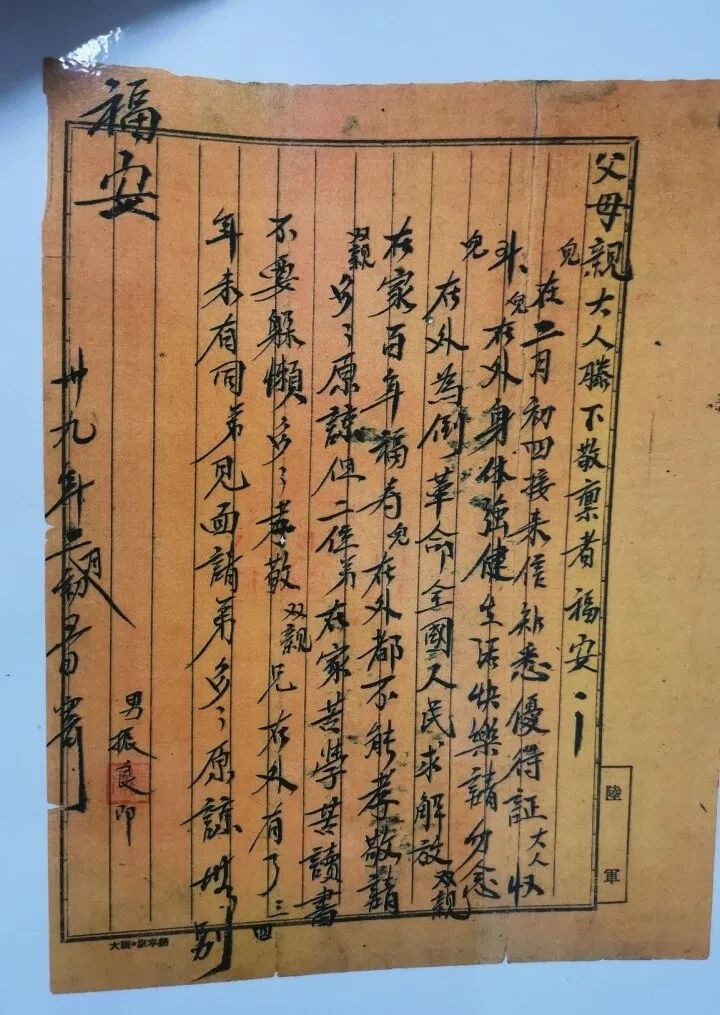 父母親大人膝下敬禀者福安
兒在二月初四接来信知悉優得証大人收
斗兒在外身体強健生活快樂請勿念
兒在外為倒革命全國人民求解放双親
在家百年福寿兒在外都不能孝敬請
双親多々原諒但二位弟在家苦學苦讀書
不要躲懶多々孝敬双親兄在外有了三四
年未有同弟見面請弟多々原諒別
福安
男振良印
卅九年二月初書寄
陸軍